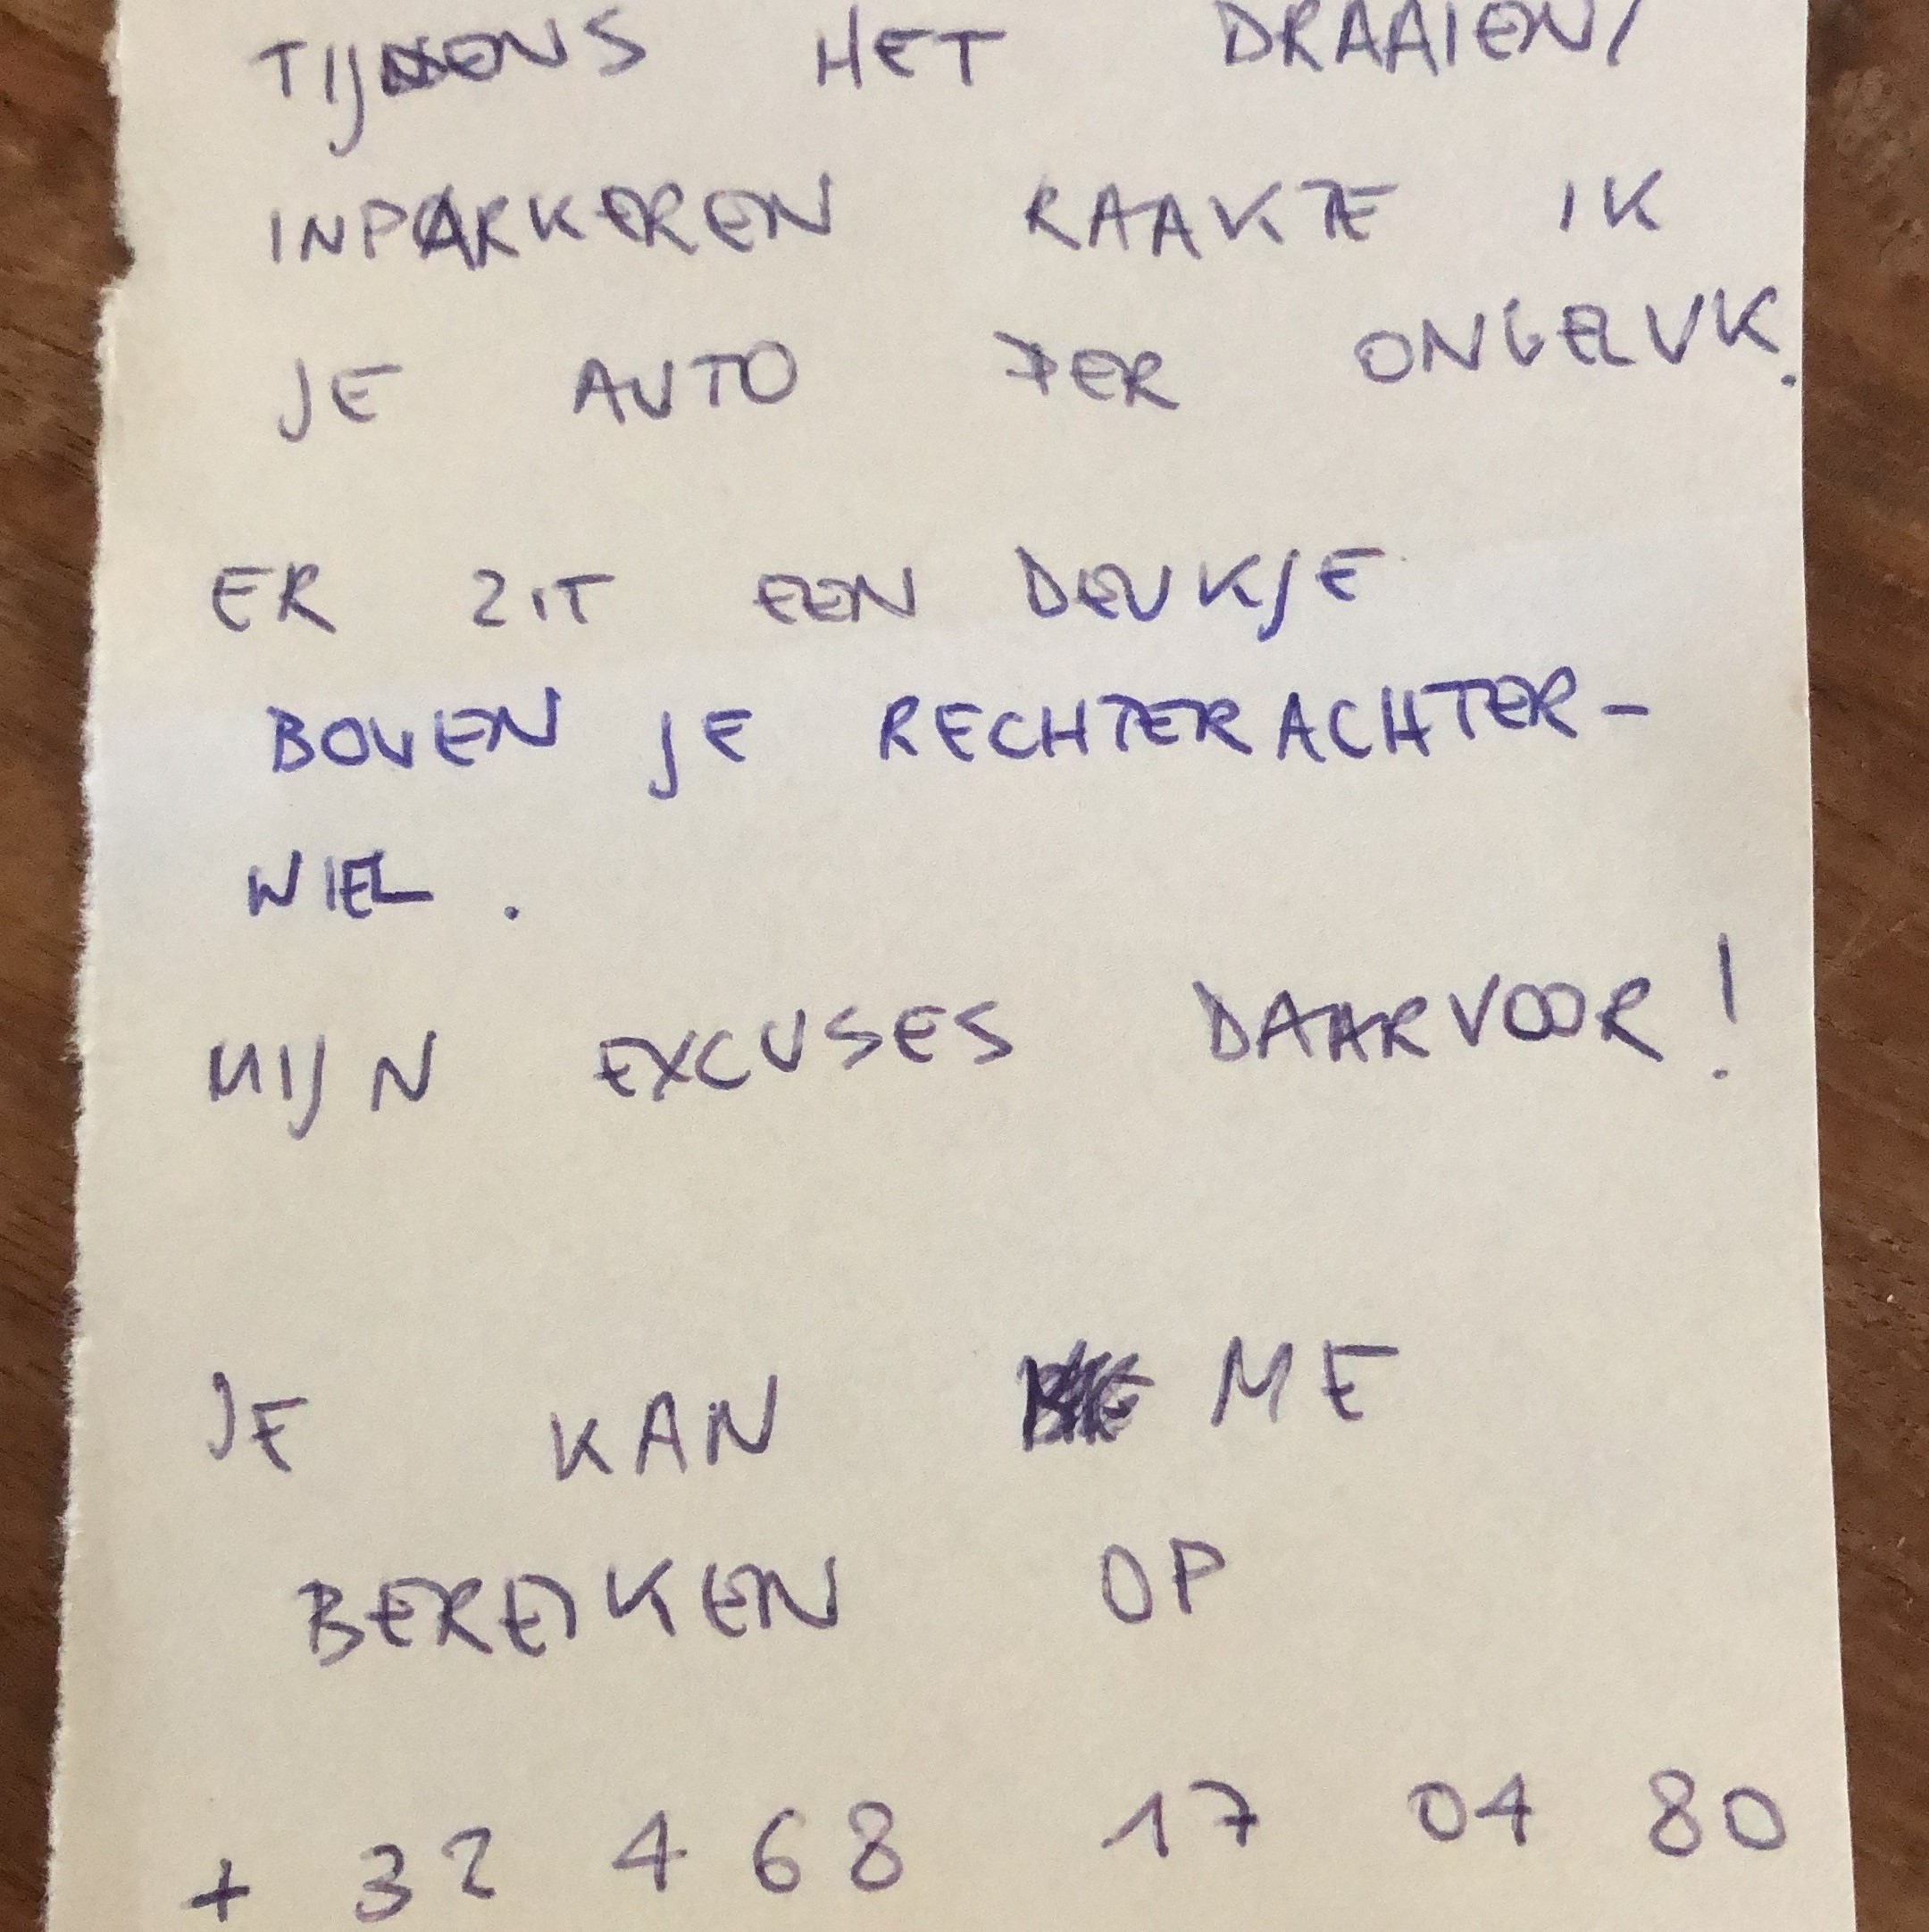 TIJDENS HET DRAAIEN/
INPARKEREN RAAKTE IK
JE AUTO PER ONGELUK.
ER ZIT EEN DEUKJE
BOVEN JE RECHTERACHTER-
WIEL.
MIJN EXCUSES DAARVOOR!
JE KAN ME
BEREIKEN OP
+ 32 468 17 04 80